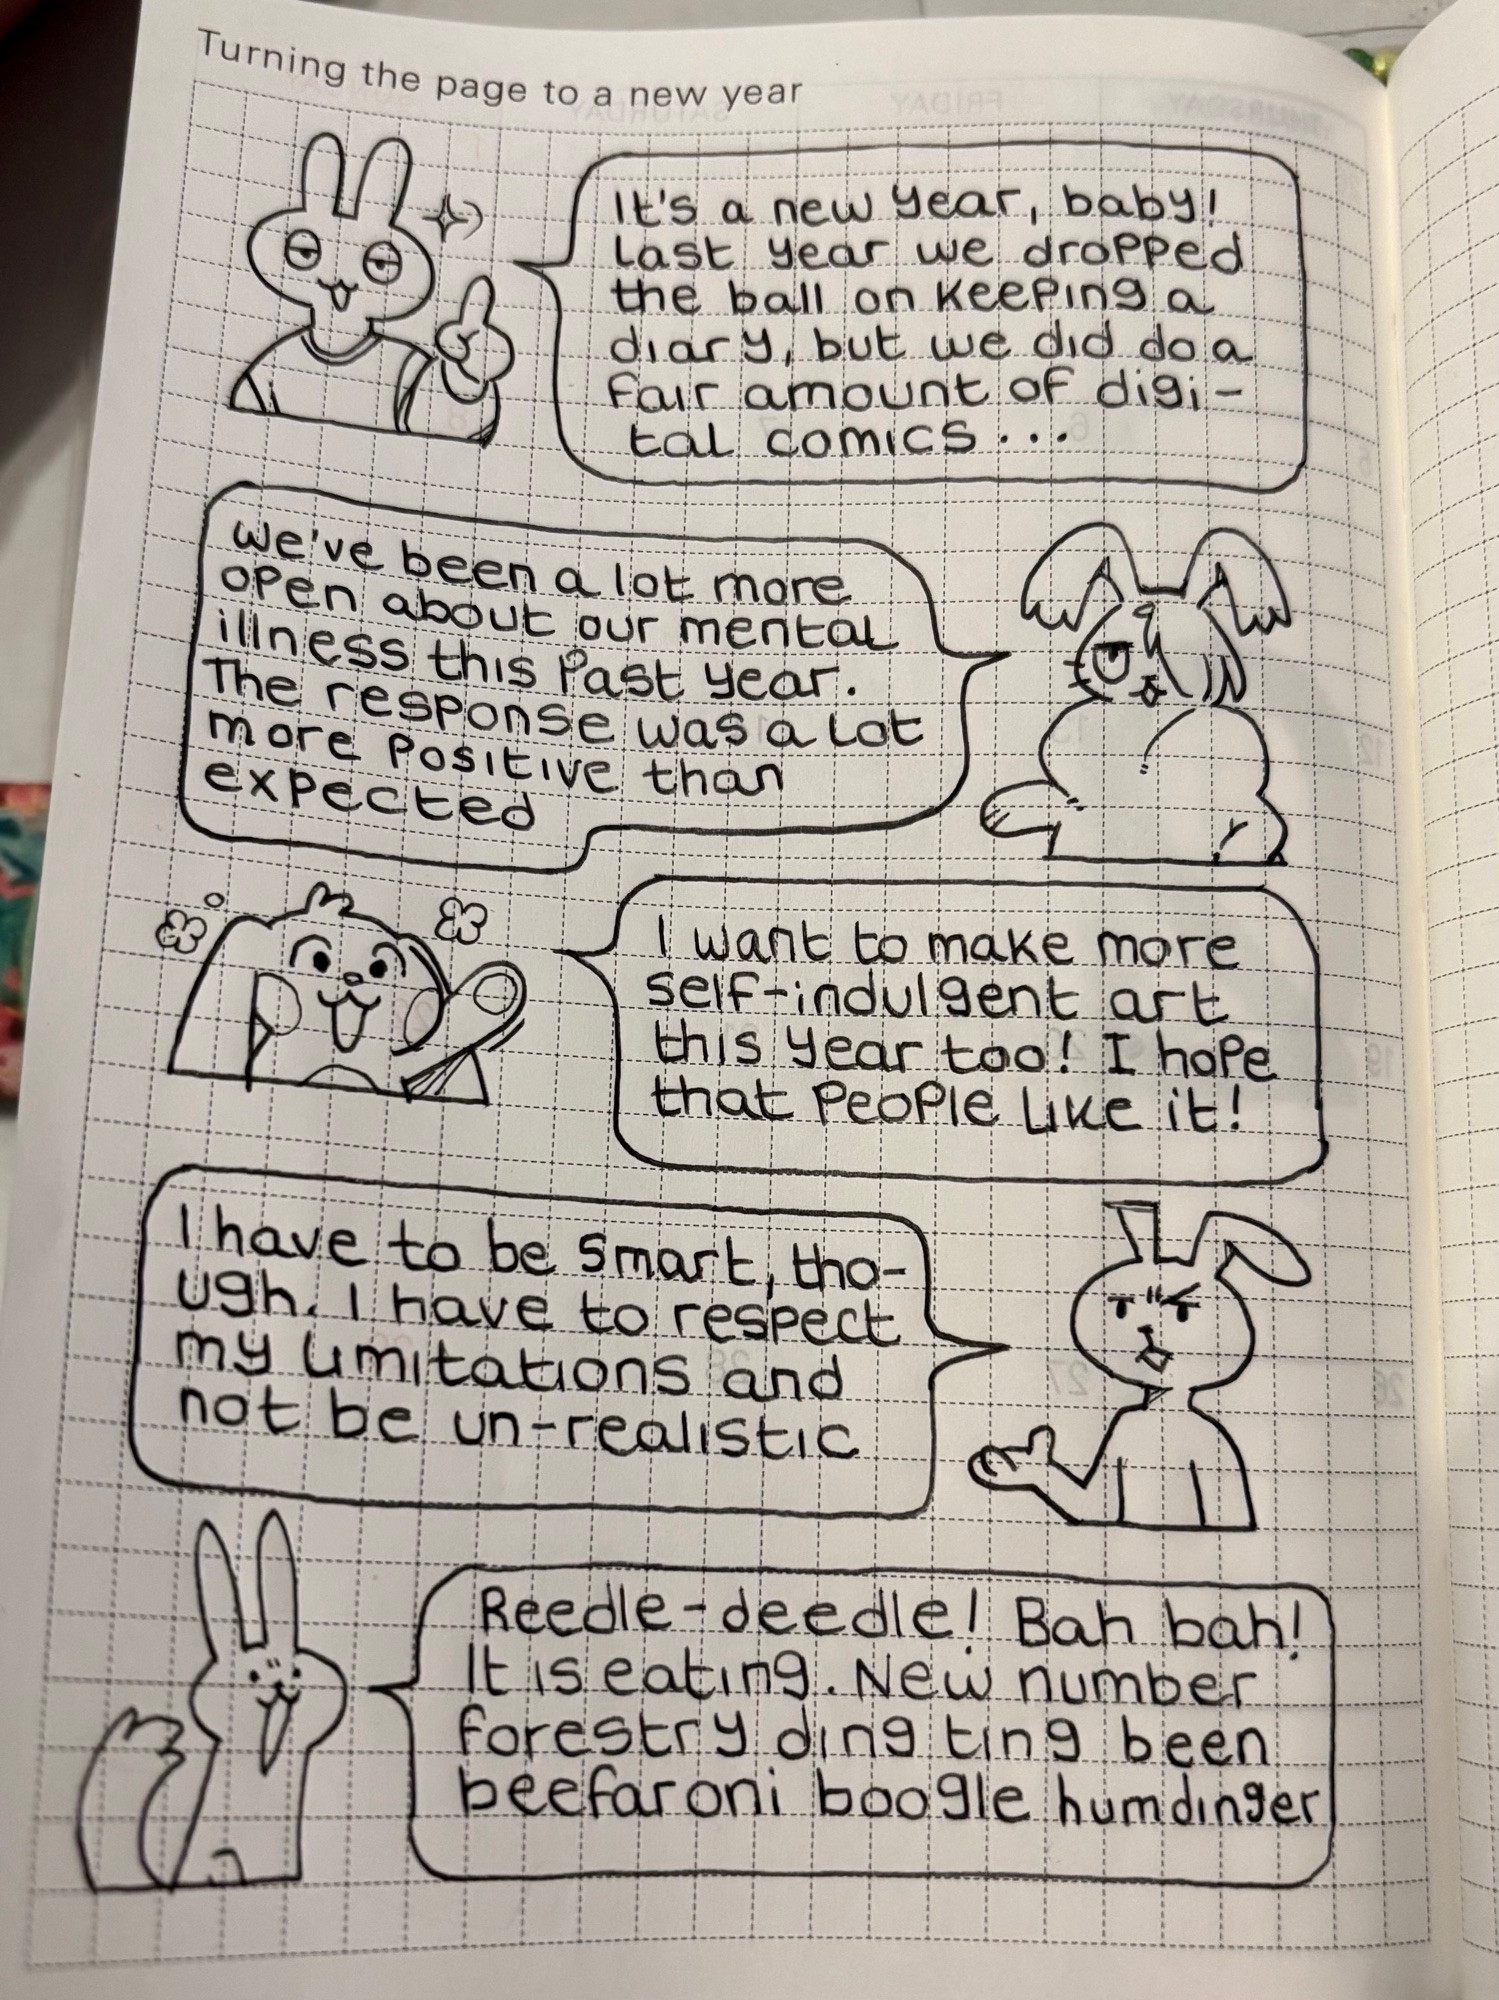 Turning the page to a new year
It's a new year, baby!
Last year we dropped
the ball on keeping a
diary, but we did do a
fair amount of digi-
tal comics...
We've been a lot more
open about our mental
illness this past year.
The response was a lot
more positive than
expected
I want to make more
self-indulgent art
this year too! I hope
that people like it!
I have to be smart, tho-
ugh. I have to respect
my limitations and
not be un-realistic
Reedle-deedle! Bah bah!
It is eating. New number
forestry ding ting been
beefaroni boogle humdinger